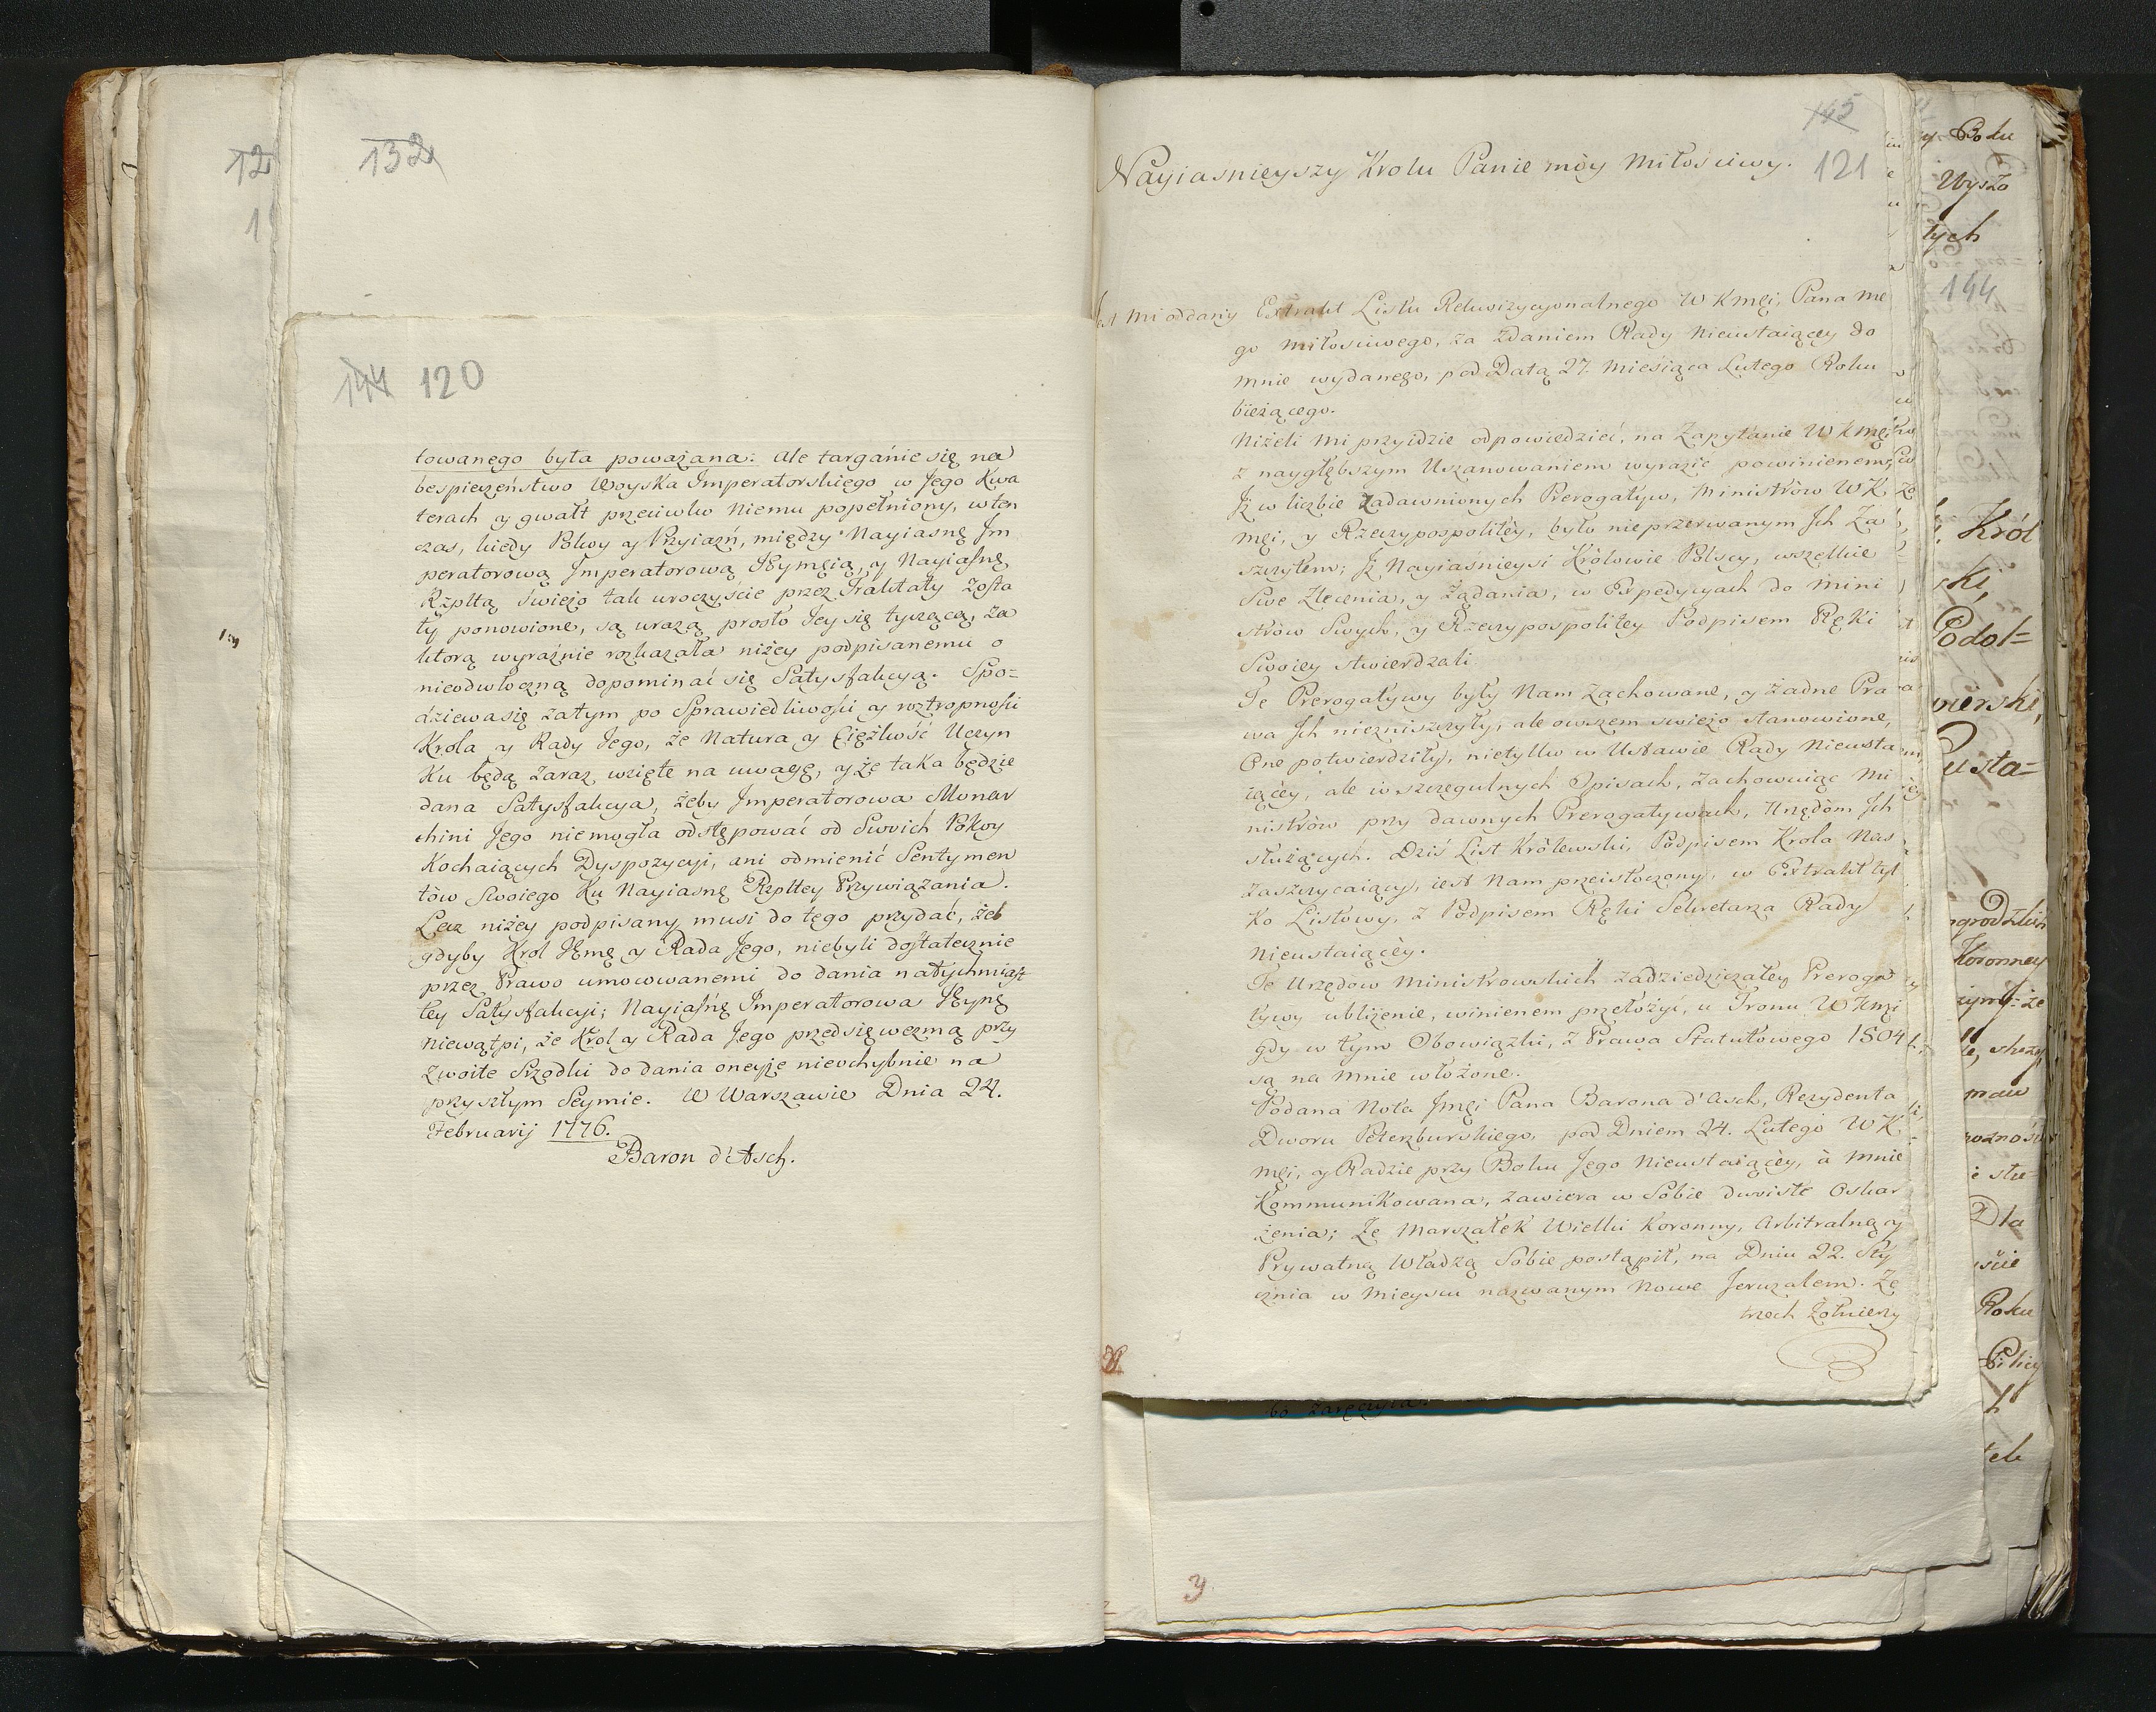 12
1
132
144 120
towanego była poważana: ale targánie się na
bespieczeństwo Woyska Imperatorskiego w Jego Kwa
terach y gwałt przeciwko Niemu popełniony, wten
czas, kiedy Pokoy y Przyiaźń, między Nayiasnę Im
peratorową Imperatorową Jeymcią, y Nayiasnę
Rzpltą świeżo tak uroczyście przez Traktaty zosta
ły ponowione, są urazą prosto Jey się tyczącą, za
ktorą wyraźnie rozkazała niżey podpisanemu o
nieodwłoczną dopominać się Satysfakcyą. Spo=
dziewa się zatym po Sprawiedliwości y roztropności
Krola y Rady Jego, że Natura y Cięźkość Uczyn
Ku będą zaraz wzięte na uwagę, y że taka będzie
dana Satysfakcya, żeby Imperatorowa Monar
chini Jego niemogła odstępować od Swoich Pokoy
Kochaiących Dyspozycyi, ani odmienić Sentymen
tów Swoiego Ku Nayiasnę Rzpltey Przywiązania.
Lecz niżey podpisany musi do tego przydać, żeb
gdyby Krol Jmę y Rada Jego, niebyli dostatecznie
przez Prawo umocowanemi do dania natychmiast
tey Satysfakcyi; Nayiaśnę Imperatorowa
Niewątpi, że Krol y Rada Jego przedsięwezmą przy
zwoite Srzodki do dania oneyże nieochybnie na
przyszłym Seymie. W Warszawie Dnia 24.
Februarij 1776.
Baron d'Asch.
145
121
Nayiasnieyszy Krolu Panie móy Miłosciwy.
Mi oddany Extrakt Listu Rekwizycyonalnego W Kmći, Pana me
go Miłosciwego, za zdaniem Rady Nieustaiącey do
mnie wydanego, pod Datą 27. Miesiąca Lutego Roku
bieżącego.
Niżeli mi przyidzie odpowiedzieć, na Zapytanie W Kmći
z naygłębszym Uszanowaniem wyrazic powinienem,
Iż w liczbie zadawnionych Prerogatyw, Ministrów WK
mći, y Rzeczypospolitéy, było nieprzerwanym Ich Za
szczytem; Iż Nayiaśnieysi Królowie Polscy, wszelkie
Swe Zlecenia, y Żądania, w Expedycyach do Mini
strów Swych, y Rzeczypospolitey Podpisem Ręki
Swoiey stwierdzali.
Te Prerogatywy były Nam zachowane, y żadne Pra
wa Ich niezniszczyły, ale owszem swieżo stanowione,
One potwierdziły, nietylko w Ustawie Rady Nieusta
iącéy, ale i w szczegulnych Opisach, zachowuiąc Mi
nistrów przy dawnych Prerogatywach, Urzędom Ich
służących. Dziś List Królewski, Podpisem Krola Nas
zaszczycaiący, iest Nam przeistoczony, w Extrakt tyl
Ko Listowy, z Podpisem Ręki Sekretarza Rady
Nieustaiącéy.
Te Urzędow Ministrowskich zadziedziczałey Preroga
tywy ubliżenie, winienem przełożyc, u Tronu W Kmći
gdy w tym Obowiązki, z Prawa Statutowego 1504
są na mnie włożone.
Podana Nota Jmći Pana Barona d'Asch, Rezydenta
Dworu Peterzburskiego, pod Dniem 24. Lutego WK
mći, y Radzie przy Boku Jego Nieustaiącéy, à mnie
Kommunikowana, zawiera w Sobie dwoiste Oskar
żenia; Że Marszałek Wielki Koronny, Arbitralną y
Prywatną Władzą Sobie postąpił, na Dniu 22. Sty
cznia w Mieyscu nazwanym Nowe Jeruzalem. Że
trzech Żołnierzy
bo zaręczyła.
y Boku
Wyszo
tych
144
Król
ski,
Podol=
Usta=
Koronney
Dla
Roku